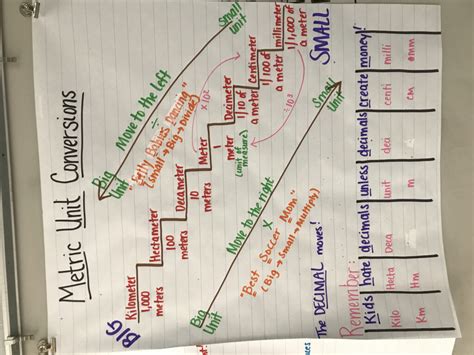 Metric Unit Conversions
Big
Unit
Move to the left
Small
unit
÷
"Silly Babies Dancing"
(Small → Big → Divide)
BIG
Kilometer
1,000
meters
Hectometer
100
meters
Decameter
10
meters
Meter
1
meter
(unit of
measure)
Decimeter
1/10 of
a meter
Centimeter
1/100 of
a meter
millimeter
1/1,000 of
a meter
SMALL
Big
Unit
Move to the right
Small
Unit
X
"Best Soccer Mom"
(Big → Small → Multiply)
The DECIMAL moves!
Remember:
Kids hate decimals unless decimals create money!
Kilo Hecta Deca unit deci centi milli
Km Hm m cm mm